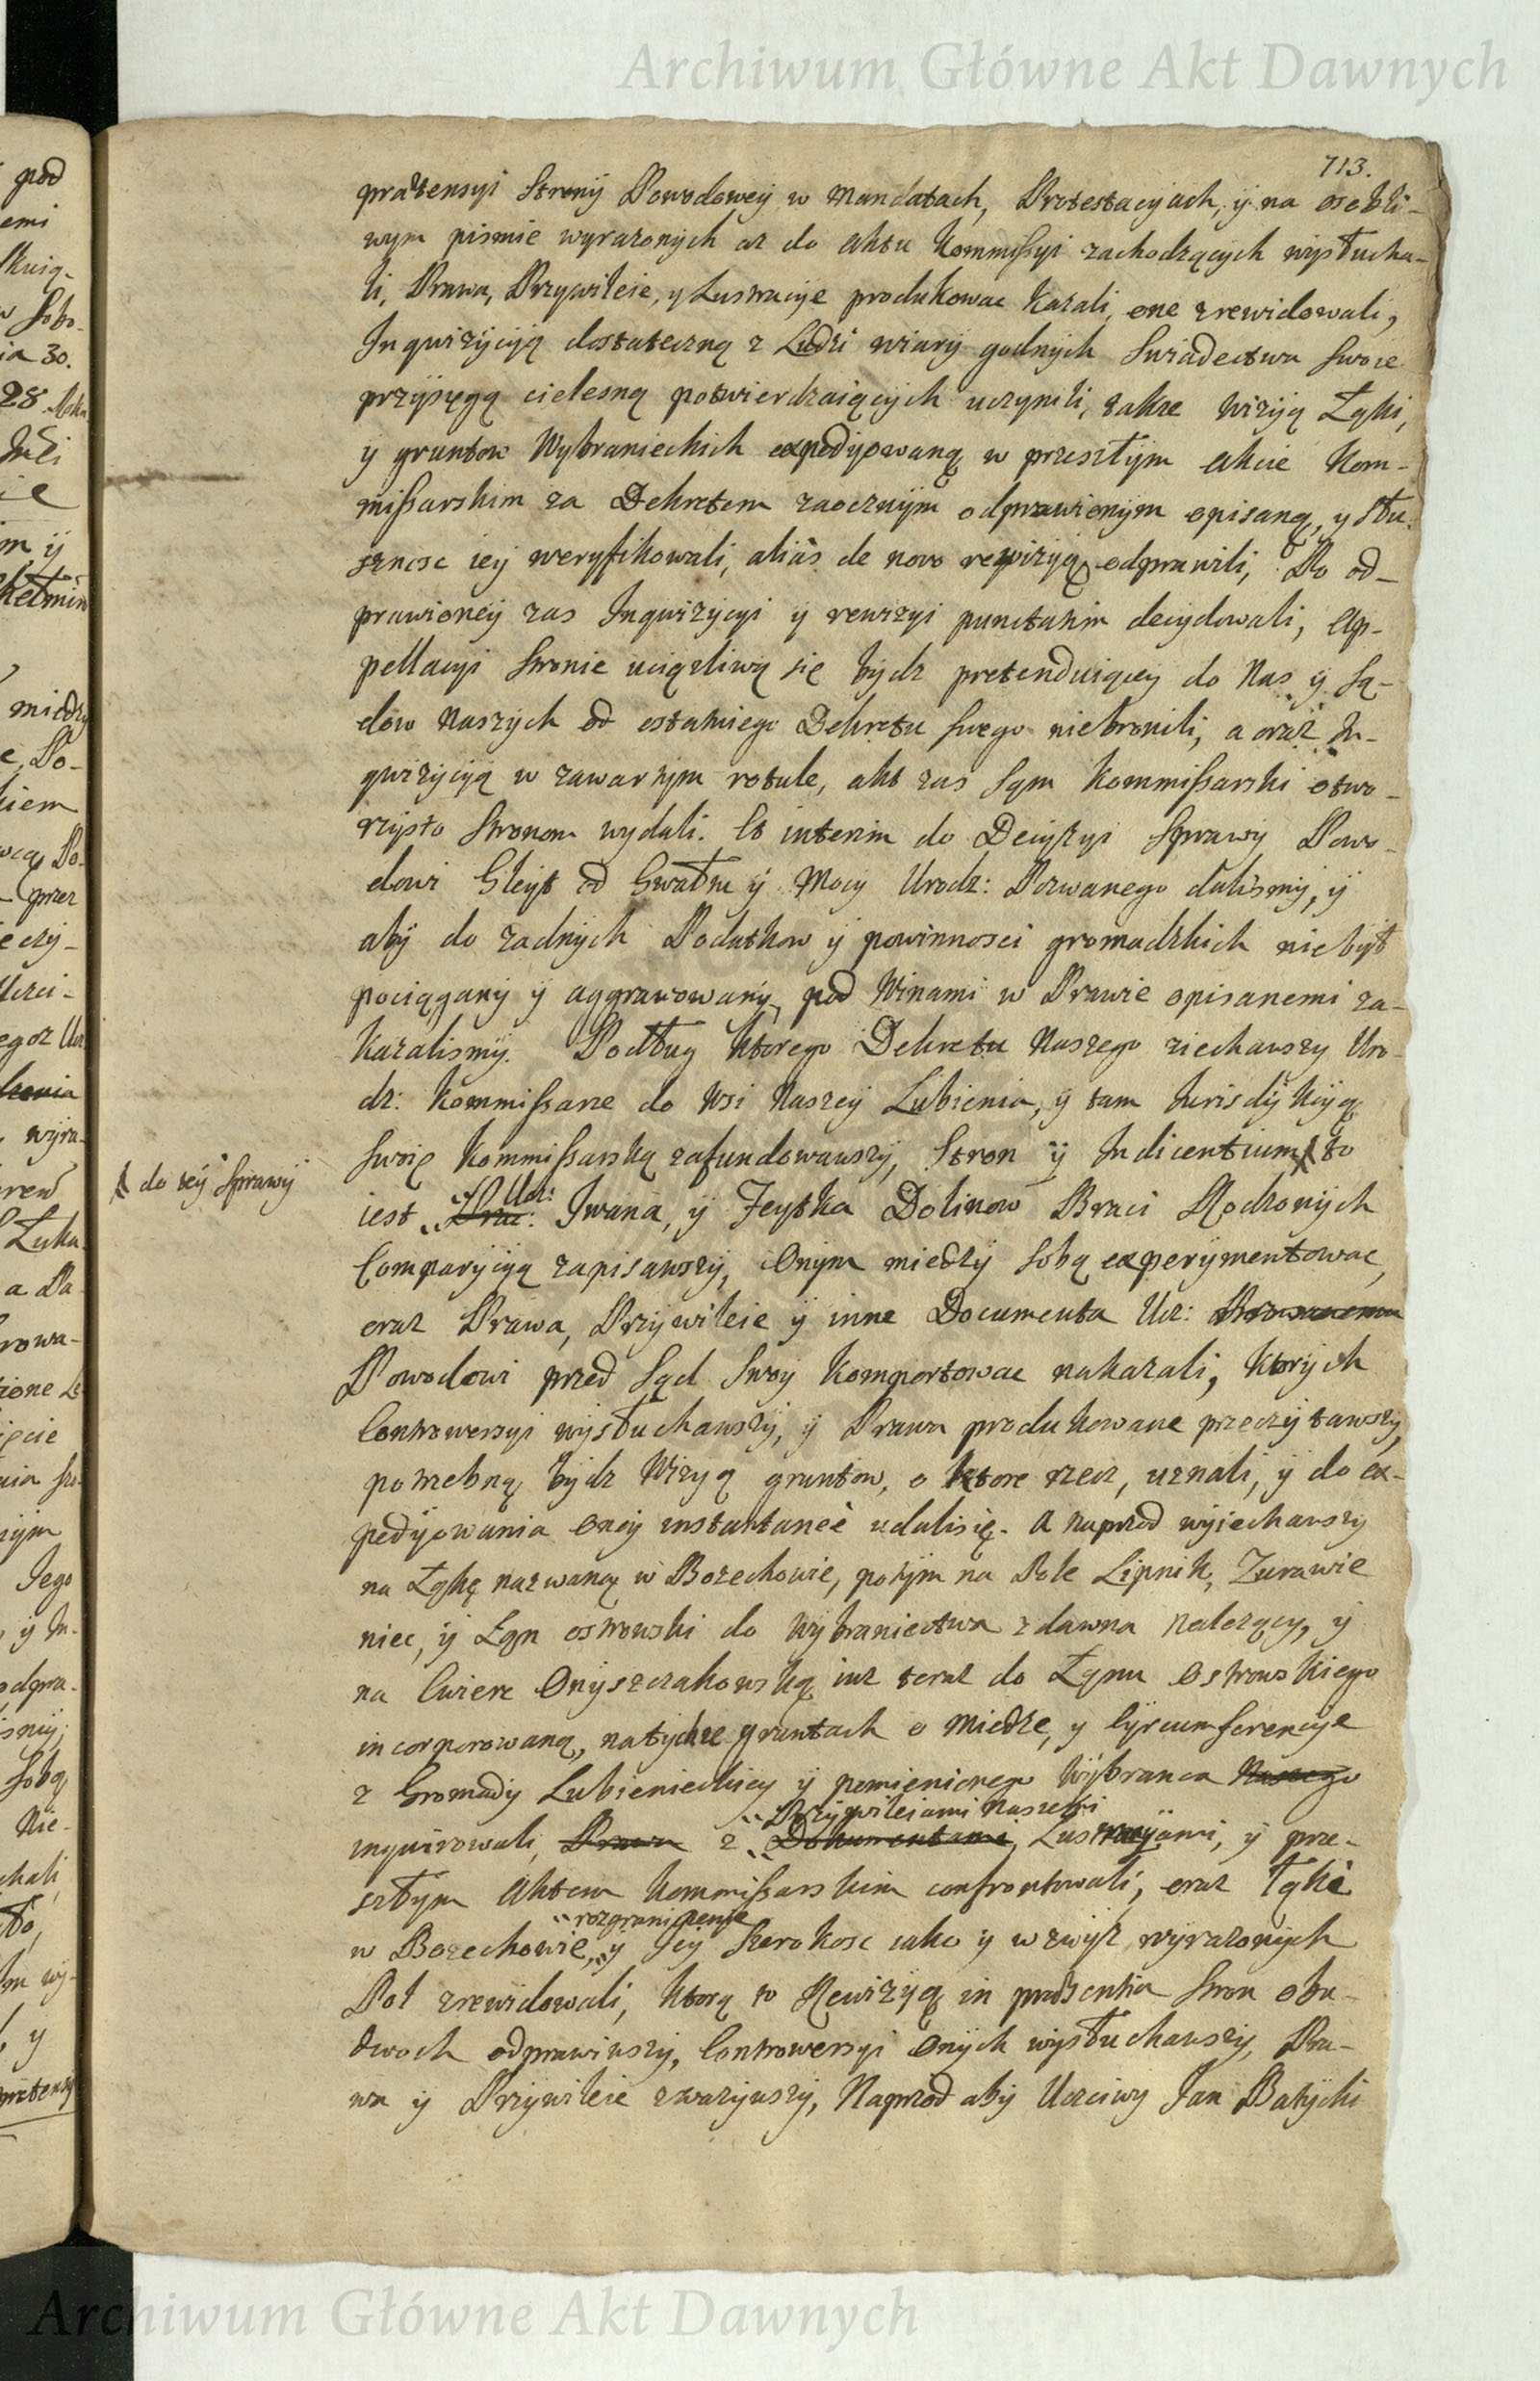 Archiwum Główne Akt Dawnych
713.
prætensyi Strony Powodowey w Mandatach, Protestacyiach, ÿ na osobli-
wym pismie wyrazonych az do Aktu Kommissyi zachodzących wysłucha-
li, Prawa, Przywileie, y Lustracye produkowac kazali, one zrewidowali,
Inquizycyą dostateczną z Ludzi wiary godnych swiadectwa swoie
przysęgą cielesną potwierdzaiących uczynili, takze Wizyą Łąki,
ÿ gruntow Wybranieckich expedyowaną w przeszłym akcie Kom-
missarskim za Dekretem zaocznym odprawionym opisaną, y słu-
sznosc iey weryfikowali, alias de novo rewizyą odprawili, Po od-
prawioney zas Inquizycyi y rewizyi punctatim decydowali, Ap-
pellacyi stronie uciązliwą się bydz pretenduiącey do Nas ÿ Są-
dow Naszych od ostatniego Dekretu swego niebronili, a oraz In-
quizycyą w zawartym rotule, akt zas sąm Kommissarski otwo-
rzysto stronom wydali. Et interim do Decyzyi Sprawy Powo-
dowi Gleyt od Gwałtu ÿ Mocy Urodz: Pozwanego dalismy, ÿ
aby do zadnych Podatkow ÿ powinnosci gromadzkich niebył
pociągany ÿ aggrawowany, pod Winami w Prawie opisanemi za-
kazalismy. Podług ktorego Dekretu Naszego ziechawszy Uro-
dz: Kommissarze do Wsi Naszey Lubienia, ÿ tam Jurisdykcyą
swoię Kommissarską zafundowawszy, Stron ÿ Indicentium to
do tey Sprawy
Ucz:
iest Prac: Iwana, ÿ Feytka Dolinow Braci Rodzonych
Comparycyą zapisawszy, Onym między sobą experymentowac,
oraz Prawa, Przywileie ÿ inne Documenta Ucz: Pozwanemu
Powodowi przed Sąd Swoy komportowac nakazali, ktorych
Controwersyi wysłuchawszy, ÿ Prawa produkowane przeczytawszy,
potrzebną bydz Wizyą gruntow, o ktore rzecz, uznali, ÿ do ex-
pedyowania oney instantanee udalisię. A naprzod wyiechawszy
na Łąkę nazwaną w Bozechowie, potym na Pole Lipnik, Zurawie
niec, ÿ Łąn ostrowski do Wybraniectwa zdawna nalezący, ÿ
na Cwierc Onyszczakowską iuz teraz do Łąnu Ostrowskiego
incorporowaną, natychze gruntach o Miedze, y Cyrcumferencye
z Gromady Lubienieckiey ÿ pomienionego Wybranca Naszego
Przywileiami Naszemi
inquirowali, Prawa z Dokumentami, Lustracyami, ÿ prze-
szłym Aktem Kommissarskim confrontowali, oraz Łąki
rozgraniczenie
w Bozechowie, ÿ Iey szerokosc iako ÿ wzwyz wyrazonych
Pol zrewidowali, ktorą to Rewizyą in præsentia stron obu-
dwoch odprawiwszy, Controwersyi onych wysłuchawszy, Pra-
wa ÿ Przywileie zwazywszy, Naprzod aby Uczciwy Jan Batycki
Archiwum Główne Akt Dawnych